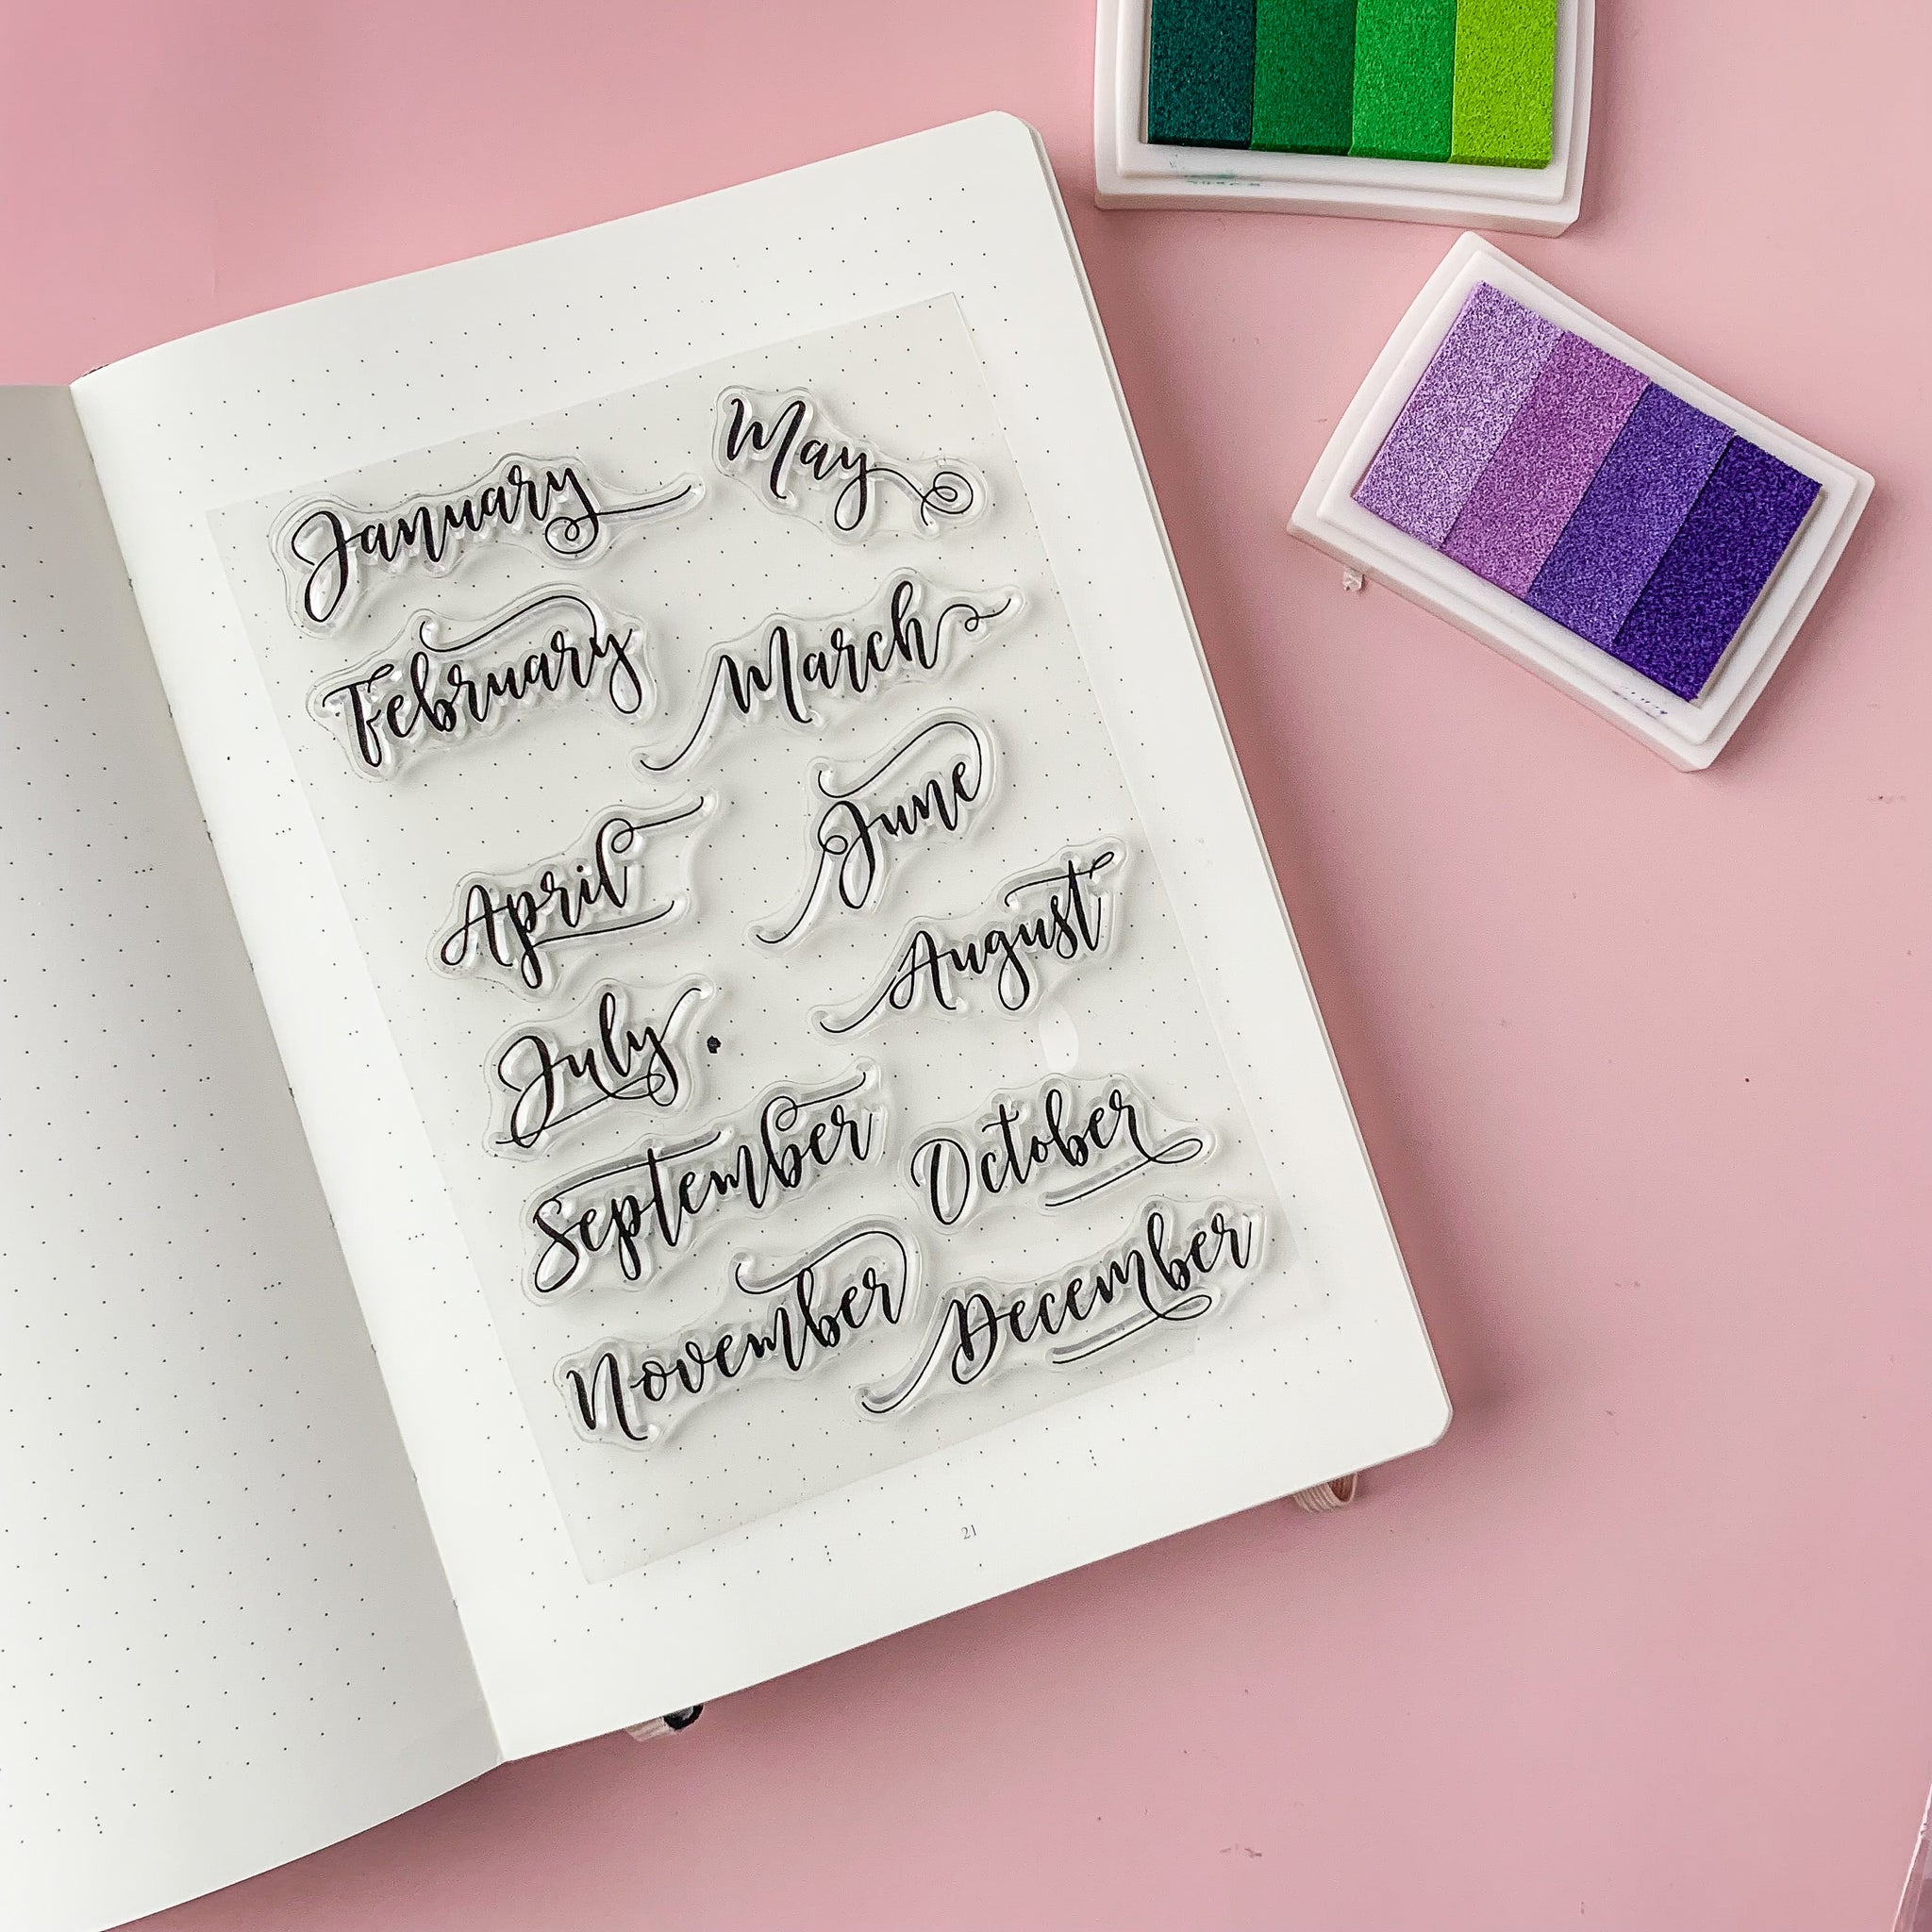 January May
February March
April June
July August
September October
November December
21